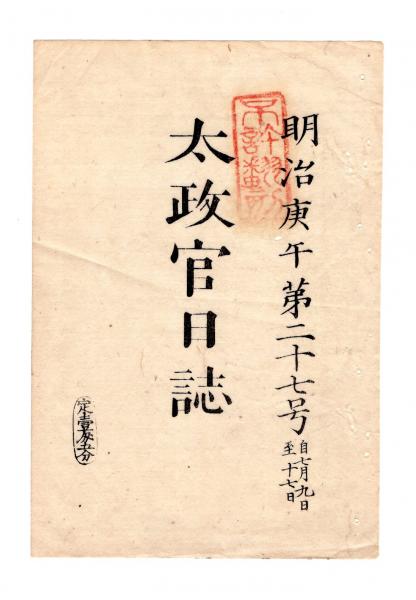 明治庚午第二十七号
自七月九日
至十七日
太政官日誌
定壹匁五分